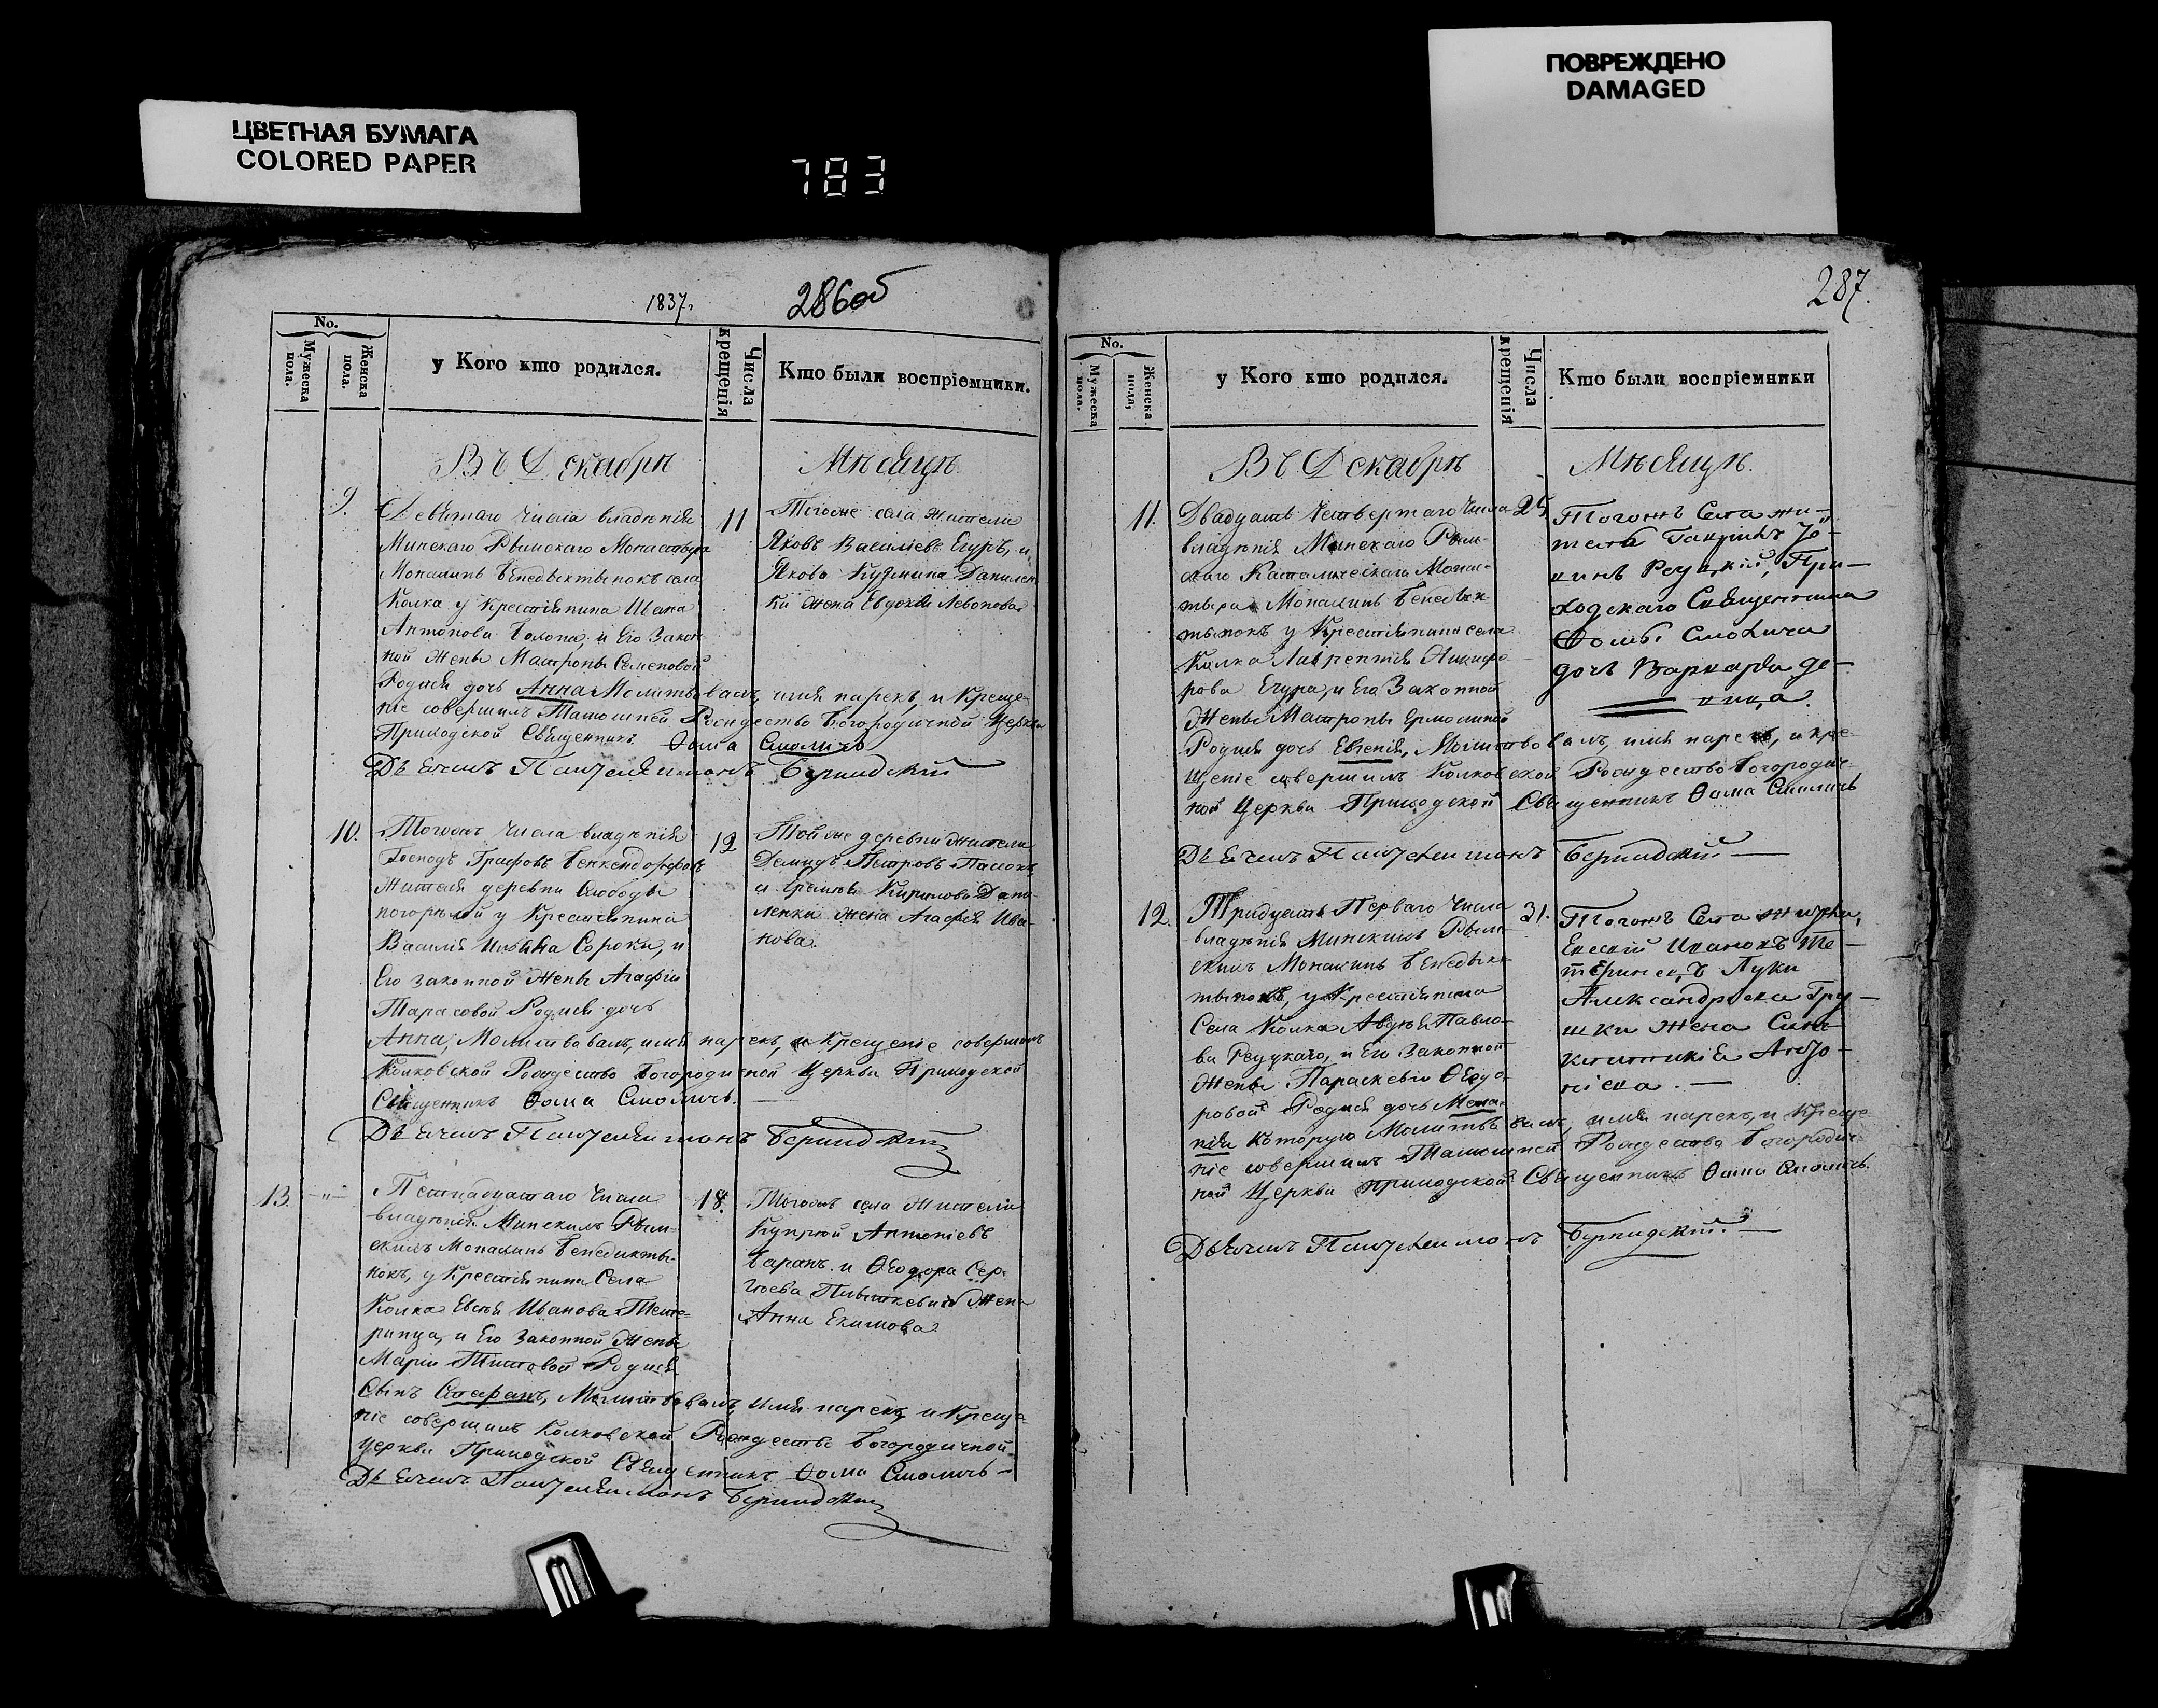 ЦВЕТНАЯ БУМАГА
COLORED PAPER
783
ПОВРЕЖДЕНО
DAMAGED
1837.
286об
No.
Мужеска пола.
Женска пола.
у Кого кто родился.
Числа крещенія
Кто были воспріемники.
Въ Декабрѣ
Мѣсяцѣ.
9.
Девятаго числа владѣнія
Минскаго Римскаго Монастыра
Монахинь Бенедыктынокъ села
Колка у Крестіянина Ивана
Антонова и Его Закон
ной Жены Матроны Семеновой
Родися дочь Анна Молитвовалъ, имя нарекъ, и Креще-
ніе совершилъ Тамошней Рождество Богородичной Церкви
Приходской Священникъ Ѳома Смоличъ
Дьячекъ Пантелеимонъ
11
Тогоже села жители
Яковъ Василіевъ Егуръ, и
Якова Кузмина
жена Евдокія
10.
Тогожъ числа владѣнія
Господъ Графовъ Бенкендорфовъ
Жителя деревни Слободы
погорѣлой у Крестіянина
Василія Сороки, и
Его законной Жены Агафіи
Тарасовой Родися дочь
Анна, Молитвовалъ, имя нарекъ, и Крещеніе совершилъ
Колковской Рождество Богородичной Церкви Приходской
Священникъ Ѳома Смоличъ.
Дьячекъ Пантелеимонъ
12
Той же деревни жители
Демидъ Петровъ
и Кирилова Дани-
ленки жена Агафія Ива-
нова.
13
Петнадцатаго числа
владѣнія Минскихъ Рим-
скихъ Монахинь Бенедикты-
нокъ, у Крестіянина Села
Колка Иванова Тете-
ринца, и Его Законной Жены
Маріи Титовой Родися
Сынъ Молитвовалъ, имя нарекъ, и Креще-
ніе совершилъ Колковской Рождество Богородичной
Церкви Приходской Священникъ Ѳома Смоличъ
Дьячекъ Пантелеимонъ
18.
Тогожъ села Жители
Антоніевъ
Баранъ и Ѳеодора Сер-
гѣева жена
Анна Екимова
287.
No.
Мужеска пола.
Женска пола,
у Кого кто родился.
Числа крещенія
Кто были воспріемники
Въ Декабрѣ
Мѣсяцѣ.
11.
Двадцать четвертаго числа
владѣнія Минскаго Рим-
скаго Католическаго Монас-
тыра Монахинь Бенедык-
тынокъ у Крестіянина села
Колка Лаврентія Никифо-
рова Егура, и Его Законной
Жены Матроны Ермолиной
Родися дочь Евгенія, Молитвовалъ, имя нарекъ, и кре-
щеніе совершилъ Колковской Рождество Богородич-
ной Церкви Приходской Священникъ Ѳома Смоличъ
Дьячекъ Пантелеимонъ
Тогожъ Села жи-
тель
Реуцкій, При-
ходскаго Священника
Ѳомы Смолича
дочь Варвара де-
вица.
12.
Тридцать Перваго числа
владѣнія Минскихъ Рим-
скихъ Монахинь Бенедык-
тынокъ, у Крестіянина
Села Колка Авдѣя Павло-
ва Реуцкаго, и Его Законной
Жены Параскевіи Ѳеодо-
ровой Родися дочь Мела-
нія которую Молитвовалъ, имя нарекъ, и Креще-
ніе совершилъ Тамошней Рождества Богородич-
ной Церкви приходской Священникъ Ѳома Смоличъ.
Дьячекъ Пантелеимонъ
31.
Тогожъ Села
Ивановъ Те-
теринецъ Луки
Александрова Гру-
шки жена
Анто-
ніева.